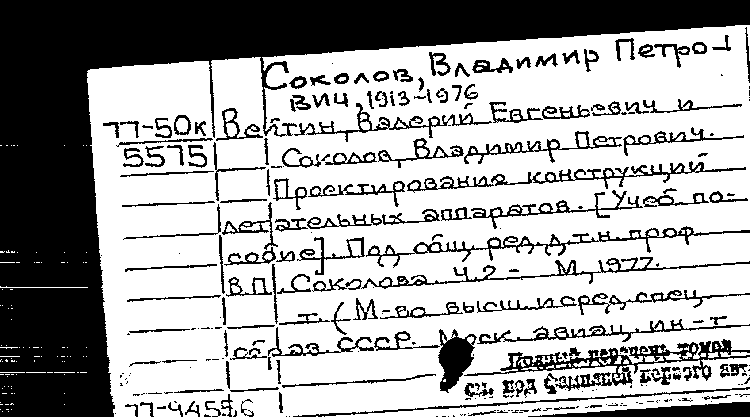 Соколов, Владимир Петро-
вич, 1913-1976
77-50к Вейтин, Валерий Евгеньевич и
5575 Соколов, Владимир Петрович.
Проектирование конструкций
летательных аппаратов. [Учеб. по-
собие]. Под общ. ред. д.т.н. проф.
В.П. Соколова. Ч.2 - М, 1977.
т. (М-во высш. и сред. спец.
образ. СССР. Моск. авиац. ин-т
Полный перечень томов
см. под фамилией первого авт
77-44556